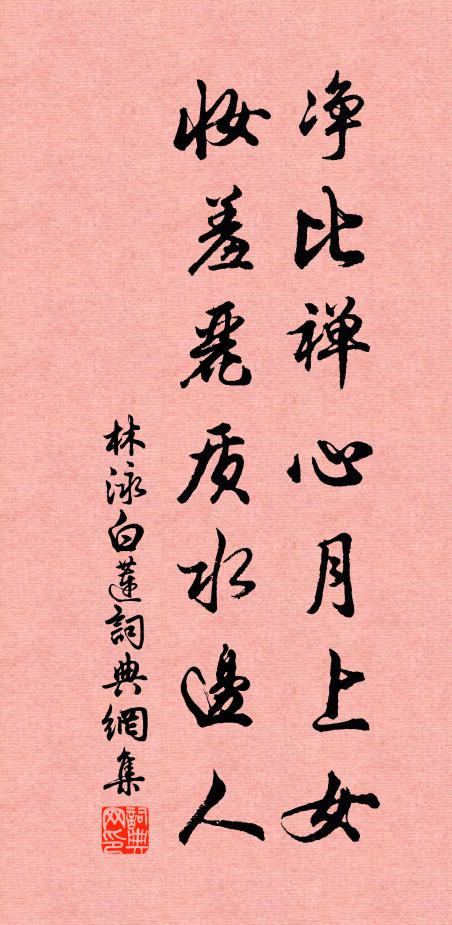 净比禅心月上女
妆羞麗质水邊人
林泳白蓮詞典網集
詞典网印